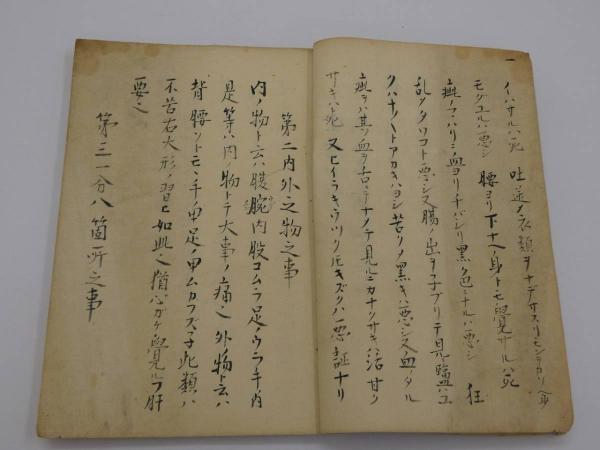 イハサルハ死 吐逆ノ衣類ヲナデサスリモシラカリ
モダユルハ悪シ 腰ヨリ下ナヘ身トモ覺サルハ死
疵ノマハリニ血ヨリチバシリ黒ク色ミナルハ悪シ 狂
乱タワコト悪シ又腸ノ出ヲ子ブリテ見
クハナノトアカキハヨシ 苦クノ黒キハ悪シ又血ノタル
疵ヲハ其血ヲ舌ニテナメテ見ルニカナクサキハ活 甘ク
サキハ死 又ヒイラキウツクトモキズクハ悪証ナリ
第二内外之物之事
内ノ物ト云ハ腹腕内股コムラ足ノウラ手ノ内
是等ハ内ノ物トテ大事ノ痛之 外物ト云ハ
背腰ソトモヽ手ノ甲足ノ甲ムカフズ子此類ハ
不苦右大形ノ習也如此之猶心ガケ覺ルヿ肝
要之
第三一分八箇所之事